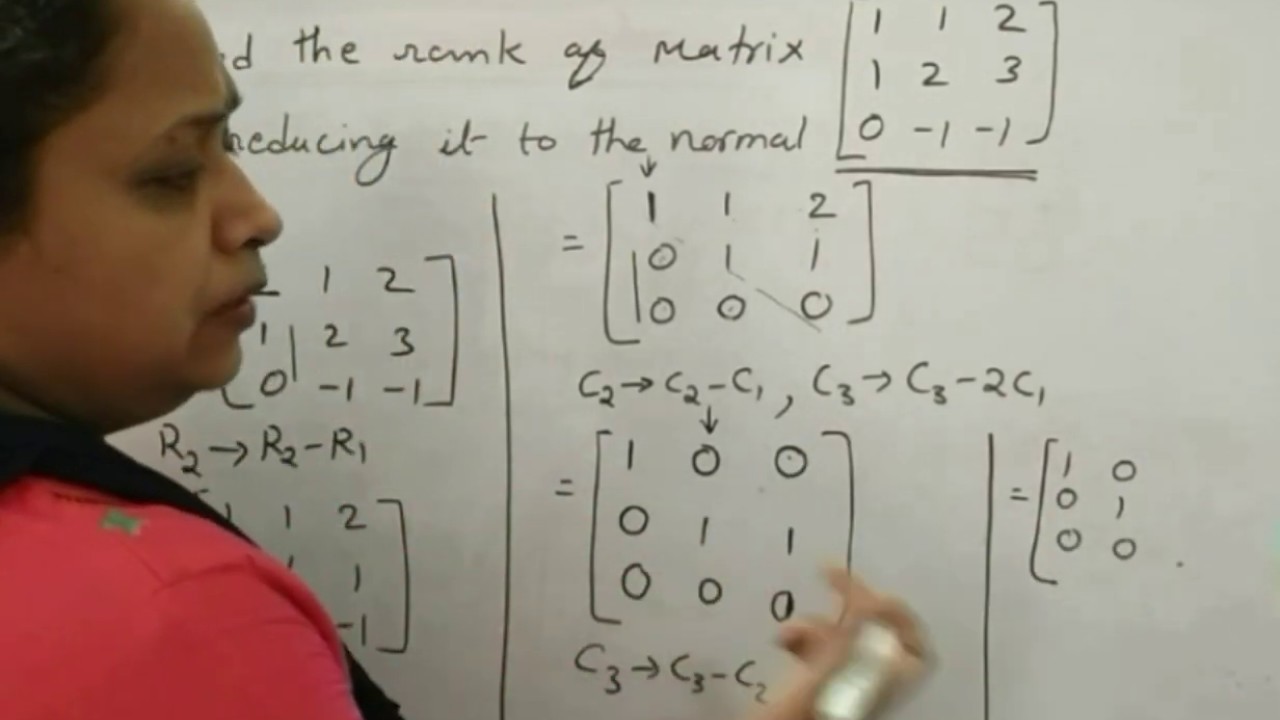 the rank of matrix
1 1 2
1 2 3
0 -1 -1
reducing it to the normal
1 2
1 2 3
0 -1 -1
R2→R2-R1
1 2
1
-1
= 1 1 2
0 1 1
0 0 0
C2→C2-C1, C3→C3-2C1
= 1 0 0
0 1 1
0 0 0
C3→C3-C2
= 1 0
0 1
0 0